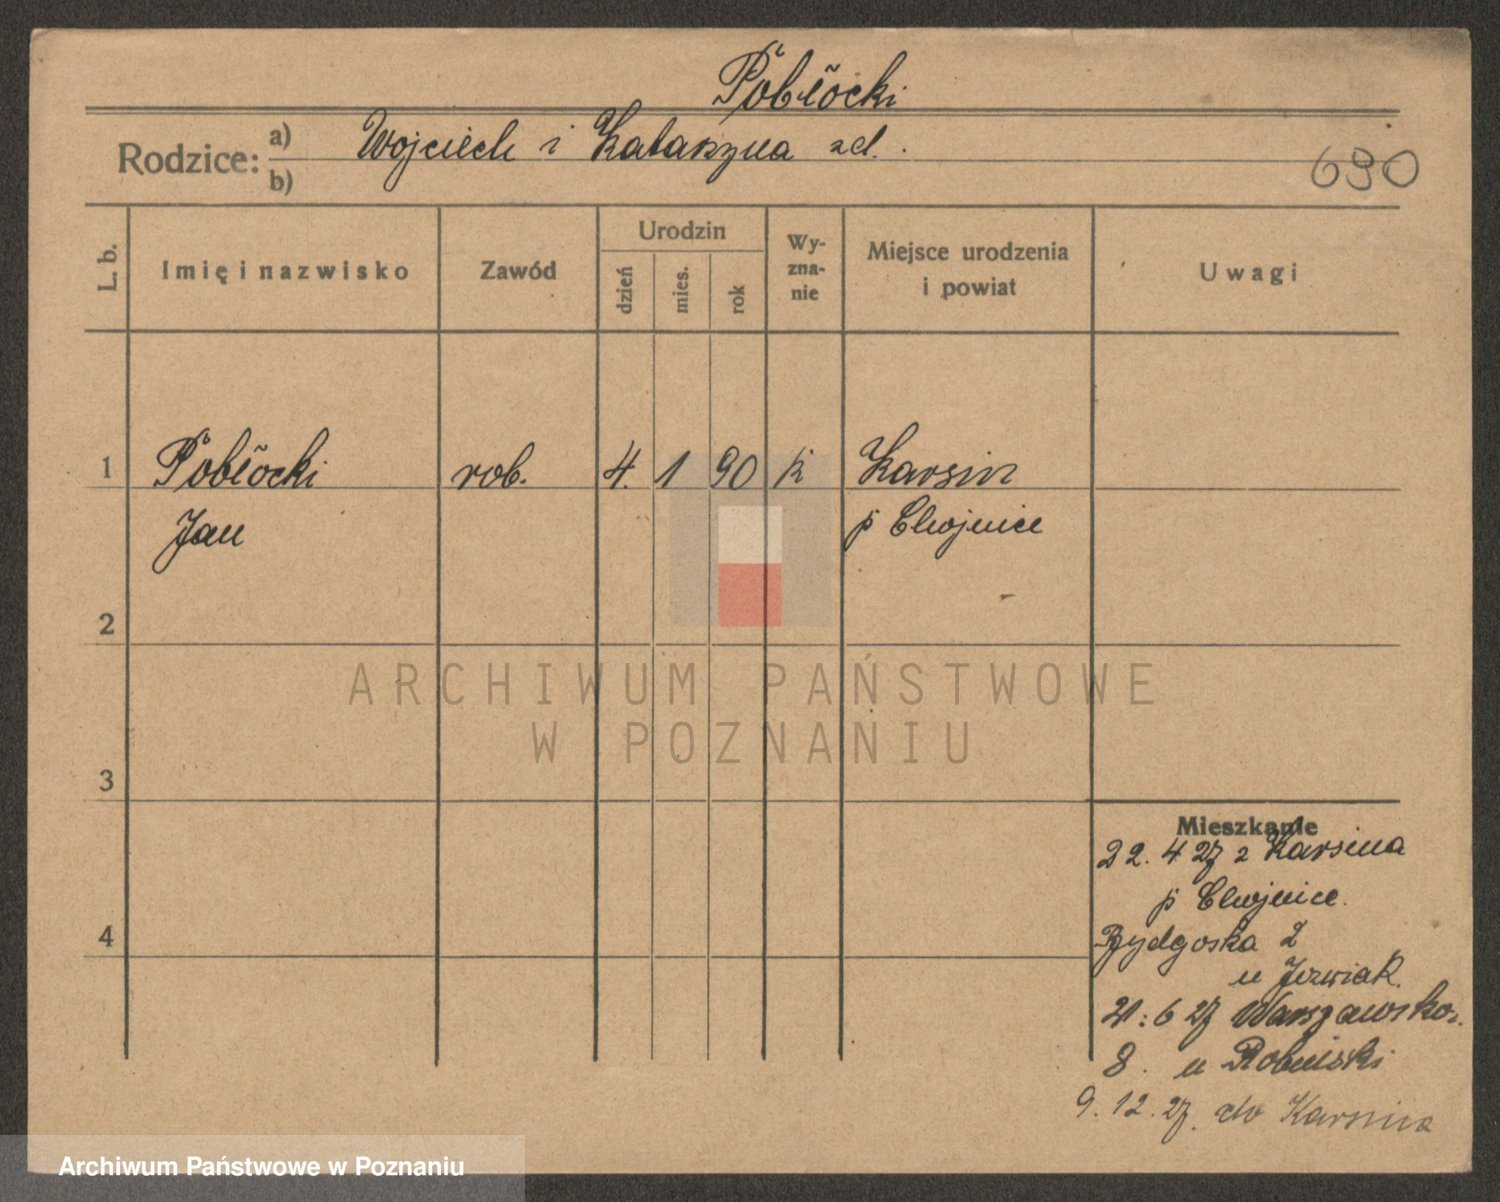 Pobłocki
Rodzice: a) Wojciech i Katarzyna zd.
b)
630
L. b.
Imię i nazwisko
Zawód
Urodzin
dzień
mies.
rok
Wy-
zna-
nie
Miejsce urodzenia
i powiat
Uwagi
1 Pobłocki rob. 4. 1 90 k Karsin
Jan p Chojnice
2
ARCHIWUM PAŃSTWOWE
W POZNANIU
3
Mieszkanie
22. 4 27 z Karsina
p Chojnice.
4
Bydgoska 2
u Jozwiak.
21. 6 27 Warszawska
8. u
9. 12. 27. do Karsina
Archiwum Państwowe w Poznaniu